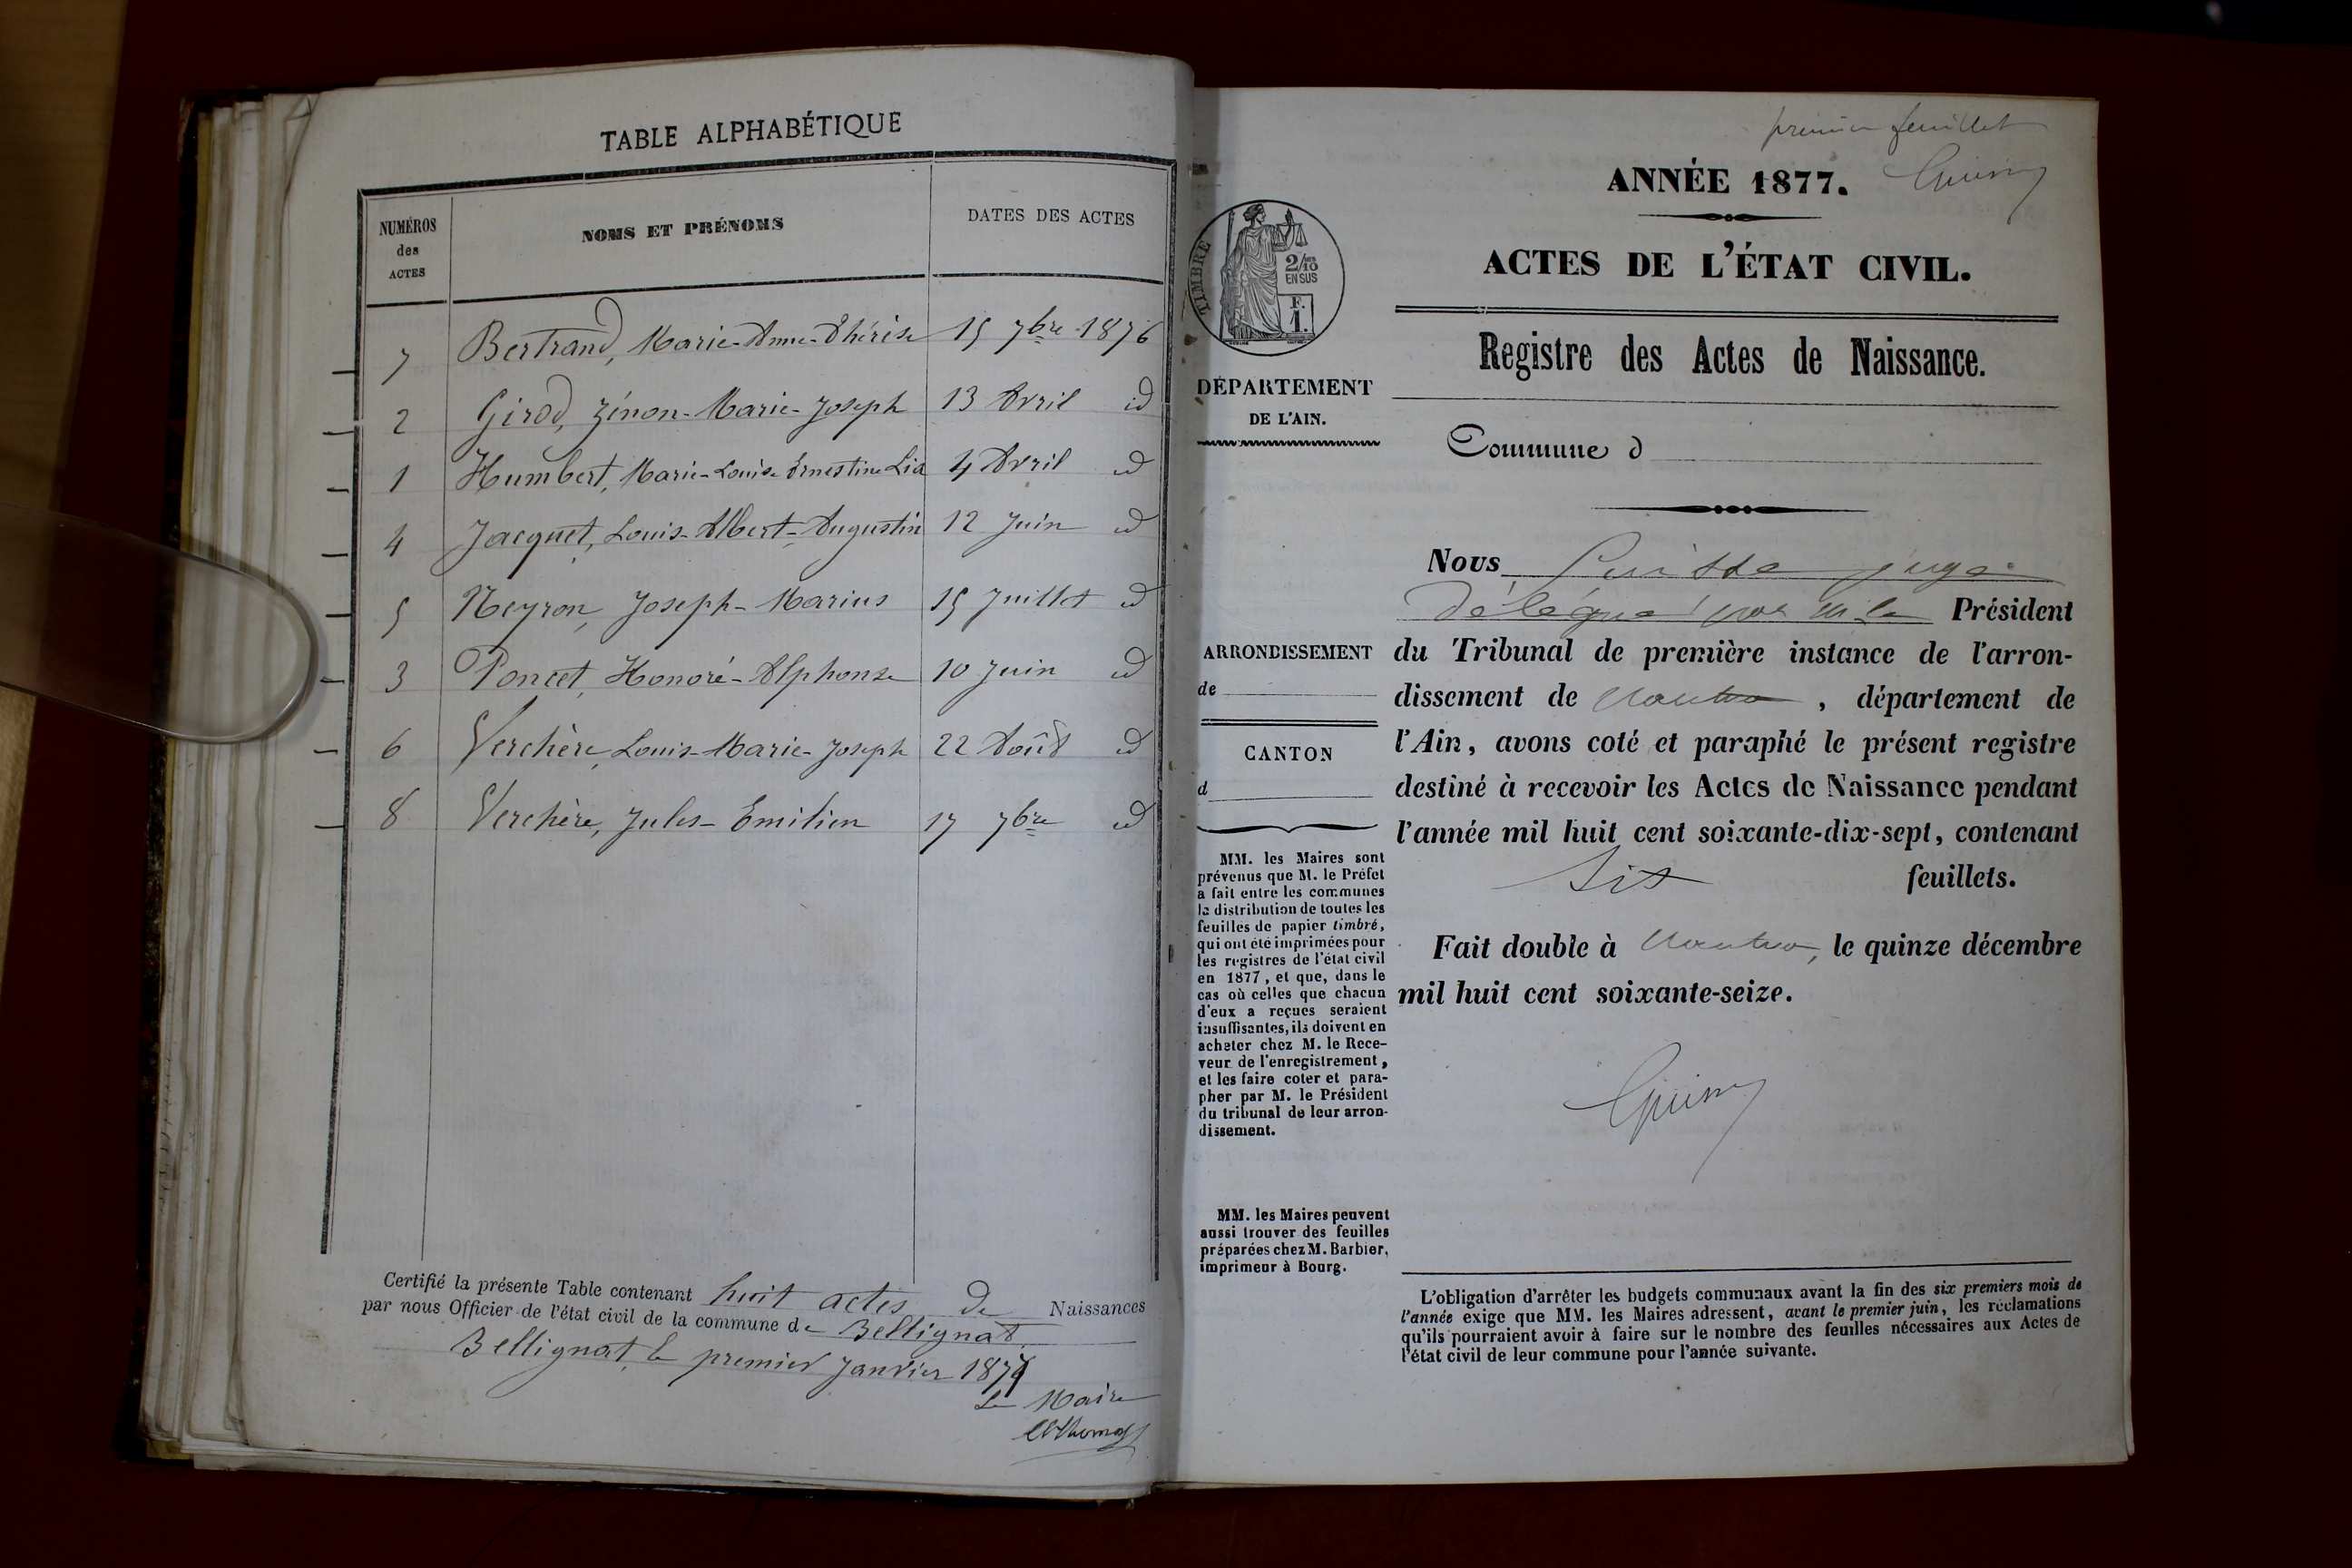 TABLE ALPHABÉTIQUE
NUMÉROS des ACTES
NOMS ET PRÉNOMS
DATES DES ACTES
7 Bertrand, Marie-Anne-Thérèse 15 7bre 1876
2 Girod, Zénon-Marie-Joseph 13 Avril id
1 Humbert, Marie-Louise Ernestine Lia 4 Avril id
4 Jacquet, Louis-Albert-Augustin 12 Juin id
5 Neyron, Joseph-Marius 15 Juillet id
3 Poncet, Honoré-Alphonse 10 Juin id
6 Verchère, Louis-Marie-Joseph 22 Août id
8 Verchère, Jules-Emilien 17 7bre id
Certifié la présente Table contenant huit actes de Naissances
par nous Officier de l'état civil de la commune de Bellignat.
Bellignat, le premier Janvier 1877
Le Maire
premier feuillet
ANNÉE 1877.
ACTES DE L'ÉTAT CIVIL.
Registre des Actes de Naissance.
Commune d
TIMBRE
2/10
EN SUS
F.
1.
DÉPARTEMENT
DE L'AIN.
ARRONDISSEMENT
de
CANTON
d
MM. les Maires sont
prévenus que M. le Préfet
a fait entre les communes
la distribution de toutes les
feuilles de papier timbré,
qui ont été imprimées pour
les registres de l'état civil
en 1877, et que, dans le
cas où celles que chacun
d'eux a reçues seraient
insuffisantes, ils doivent en
acheter chez M. le Rece-
veur de l'enregistrement,
et les faire coter et para-
pher par M. le Président
du tribunal de leur arron-
dissement.
MM. les Maires peuvent
aussi trouver des feuilles
préparées chez M. Barbier,
imprimeur à Bourg.
Nous juge
délégué par M. le Président
du Tribunal de première instance de l'arron-
dissement de Nantua, département de
l'Ain, avons coté et paraphé le présent registre
destiné à recevoir les Actes de Naissance pendant
l'année mil huit cent soixante-dix-sept, contenant
six feuillets.
Fait double à Nantua, le quinze décembre
mil huit cent soixante-seize.
L'obligation d'arrêter les budgets communaux avant la fin des six premiers mois de
l'année exige que MM. les Maires adressent, avant le premier juin, les réclamations
qu'ils pourraient avoir à faire sur le nombre des feuilles nécessaires aux Actes de
l'état civil de leur commune pour l'année suivante.